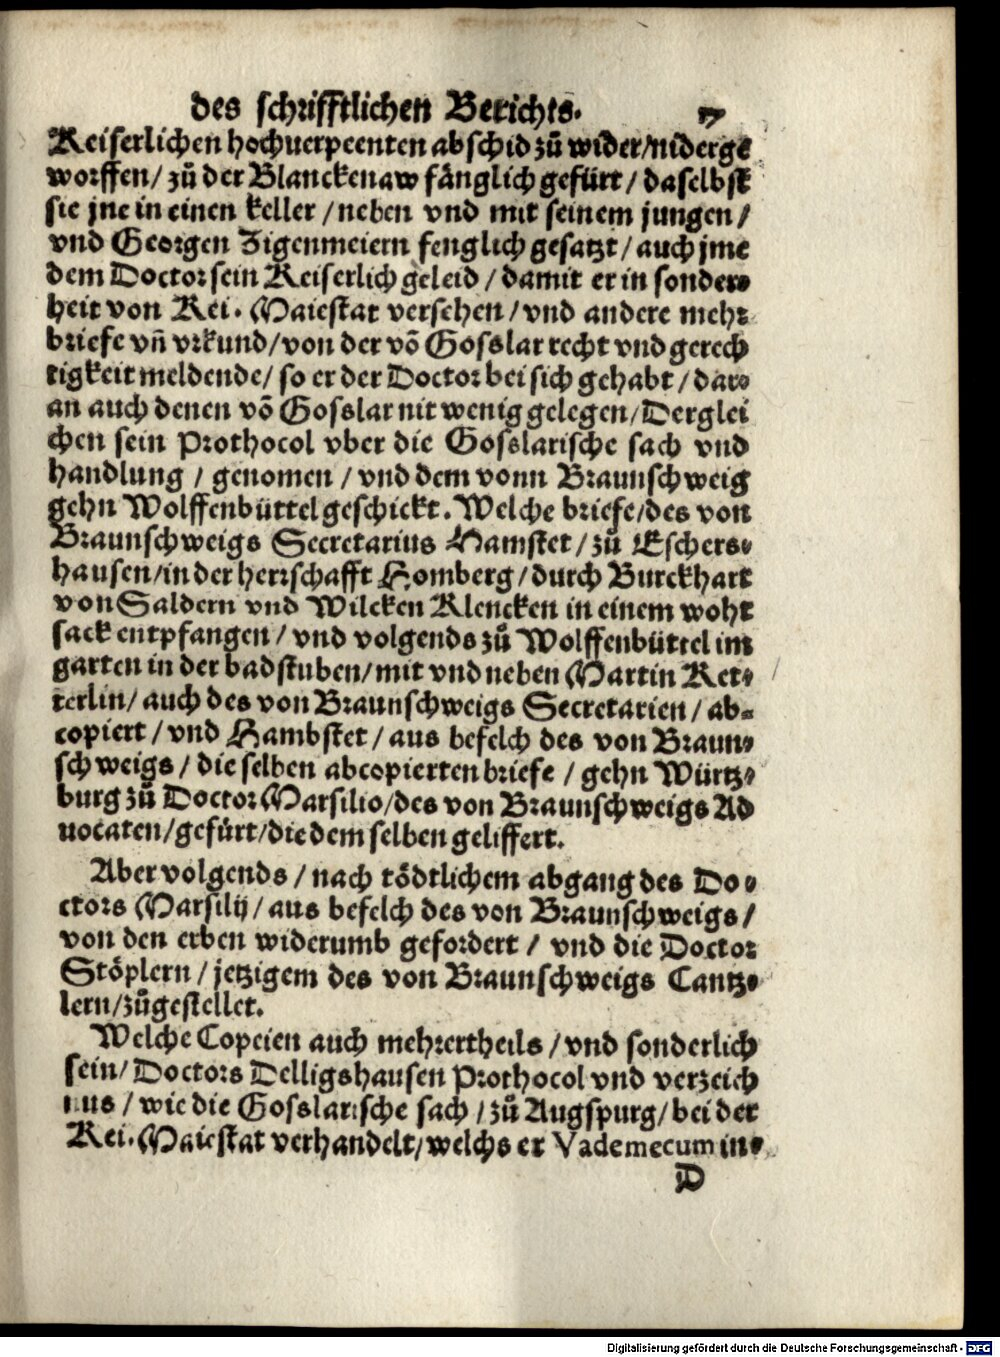 des schrifftlichen Berichts.
Keiserlichen hochuerpeenten abschid zů wider/niderge
worffen/ zů der Blanckenaw fänglich gefürt/ daselbst
sie jne in einen keller/neben vnd mit seinem jungen/
vnd Georgen Zigenmeiern fenglich gesatzt/ auch jme
dem Doctor sein Keiserlich geleid/ damit er in sonder⸗
heit von Kei. Maiestat versehen/vnd andere mehr
briefe vñ vrkund/von der võ Gosslar recht vnd gerech
tigkeit meldende/ so er der Doctor bei sich gehabt/dar⸗
an auch denen võ Gosslar nit wenig gelegen/Derglei
chen sein Prothocol vber die Gosslarische sach vnd
handlung/ genomen/ vnd dem vonn Braunschweig
gehn Wolffenbüttel geschickt. Welche briefe/des von
Braunschweigs Secretarius Hamstet/zů Eschers⸗
hausen/in der herrschafft Homberg/durch Burckhart
von Saldern vnd Wilcken Klencken in einem woht
sack entpfangen/ vnd volgends zů Wolffenbüttel im
garten in der badstuben/mit vnd neben Martin Ket⸗
terlin/ auch des von Braunschweigs Secretarien/ ab⸗
copiert/ vnd Hambstet/ aus befelch des von Braun⸗
schweigs/ die selben abcopierten briefe/ gehn Würtz⸗
burg zů Doctor Marsilio/des von Braunschweigs Ad
uocaten/gefürt/die dem selben geliffert.
Aber volgends/nach tödtlichem abgang des Do⸗
ctors Marsilij/ aus befelch des von Braunschweigs/
von den erben widerumb gefordert/ vnd die Doctor
Stöplern/jetzigem des von Braunschweigs Cantz⸗
lern/zůgestellet.
Welche Copeien auch mehrertheils/vnd sonderlich
sein/Doctors Delligshausen Prothocol vnd verzeich
nus/ wie die Gosslarische sach/zů Augspurg/bei der
Kei. Maiestat verhandelt/welchs er Vademecum in⸗
D
Digitalisierung gefördert durch die Deutsche Forschungsgemeinschaft - DFG